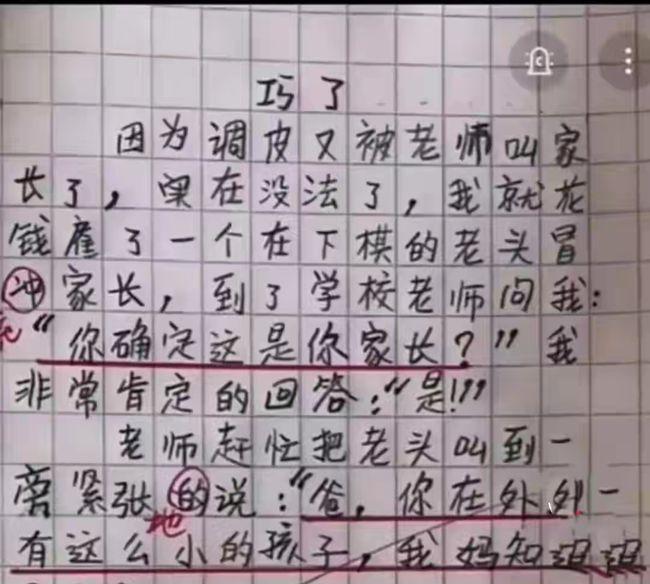 巧了
因为调皮又被老师叫家
长了，实在没法了，我就花
钱雇了一个在下棋的老头冒
冲家长，到了学校老师问我：
“你确定这是你家长？”我
非常肯定的回答：“是！”
老师赶忙把老头叫到一
旁紧张的说：“爸，你在外
地
有这么小的孩子，我妈知